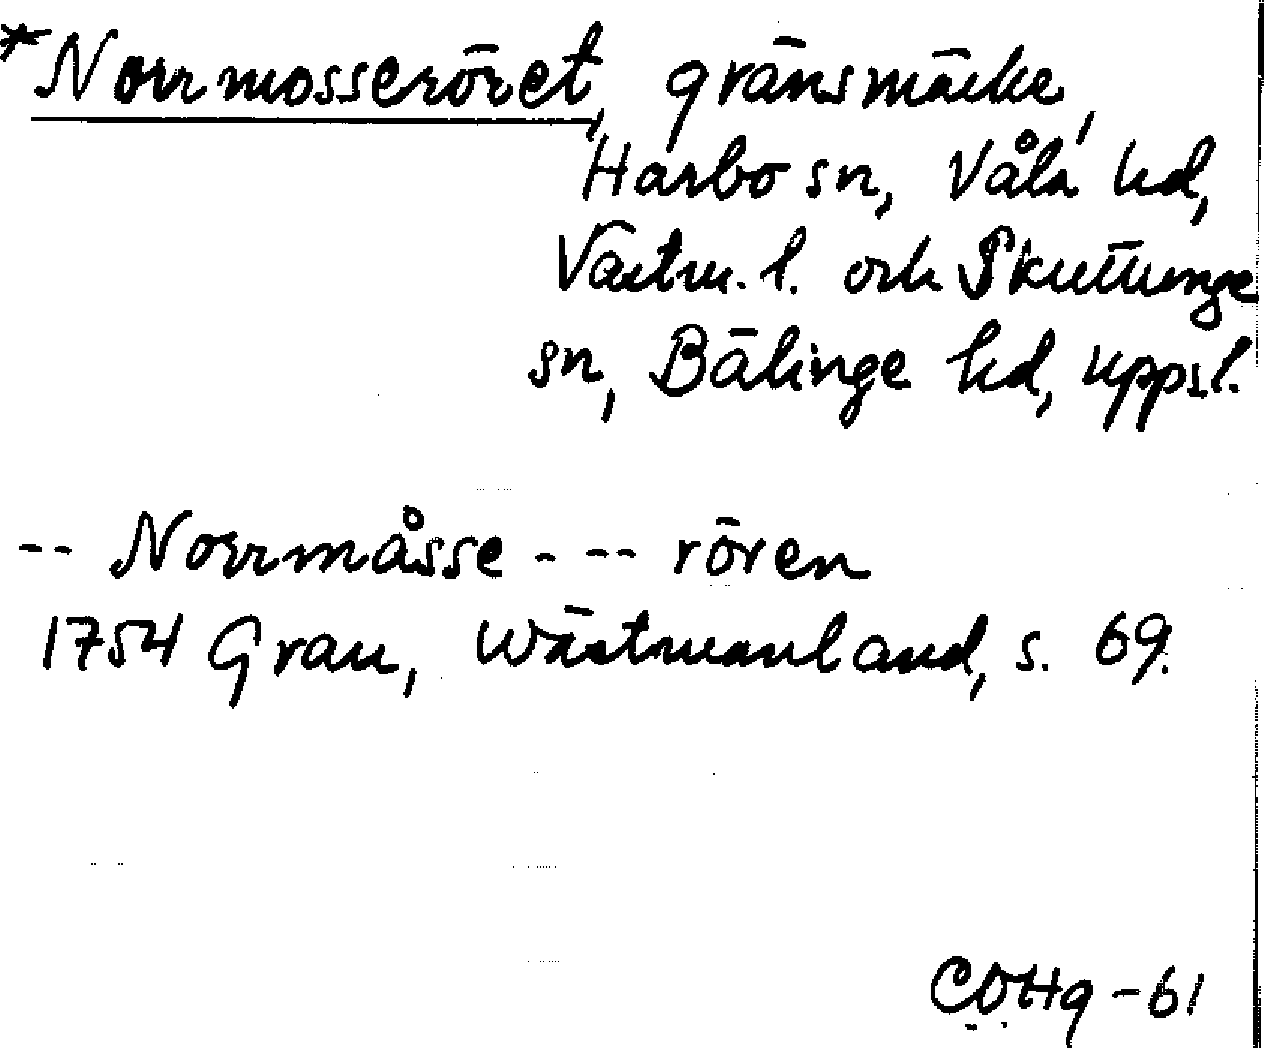 *Norrmosseröret, gränsmärke,
Harbo sn, Våla hd,
Västm. l. och Skuttunge
sn, Bälinge hd, Uppsl.
-- Norrmåsse - -- rören
1754 Grau, Wästmanland, s. 69.
COHg -61